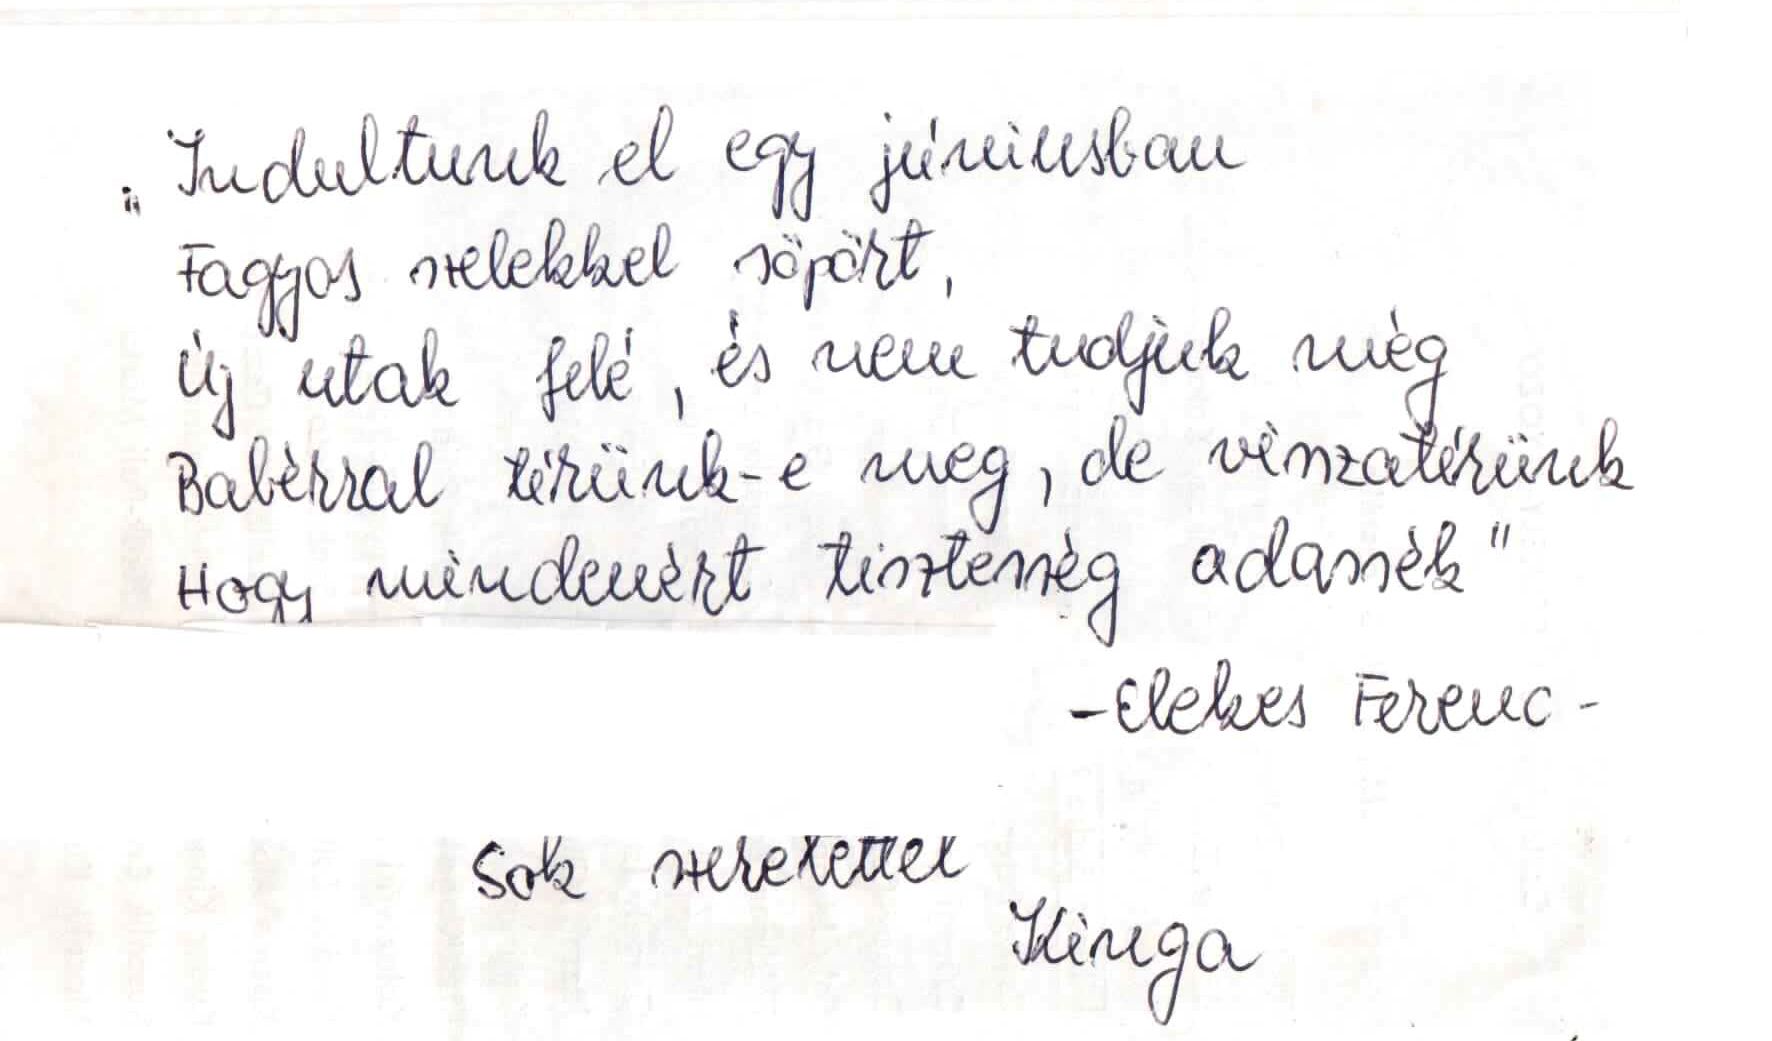 „Indultunk el egy júniusban
Fagyos szelekkel söpört,
Új utak felé, és nem tudjuk még
Babérral térünk-e meg, de visszatérünk
Hogy mindenért tisztesség adassék"
-Elekes Ferenc-
Sok szeretettel
Kinga